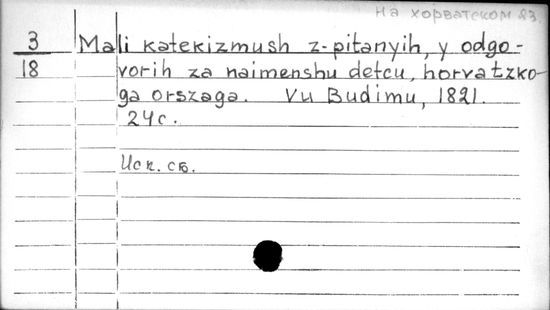 на хорватском яз.
3 Mali katekizmush z-pitanyih, y odgo-
18 vorih za naimenshu detcu, horvatzko-
ga orszaga. Vu Budimu, 1821.
24с.
Иск. сб.